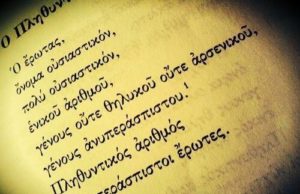 Ὁ Πληθυν
Ὁ ἔρωτας,
ὄνομα οὐσιαστικόν,
πολύ οὐσιαστικόν,
ἑνικοῦ ἀριθμοῦ,
γένους οὔτε θηλυκοῦ οὔτε ἀρσενικοῦ,
γένους ἀνυπεράσπιστου!
Πληθυντικός ἀριθμός
εράσπιστοι ἔρωτες.